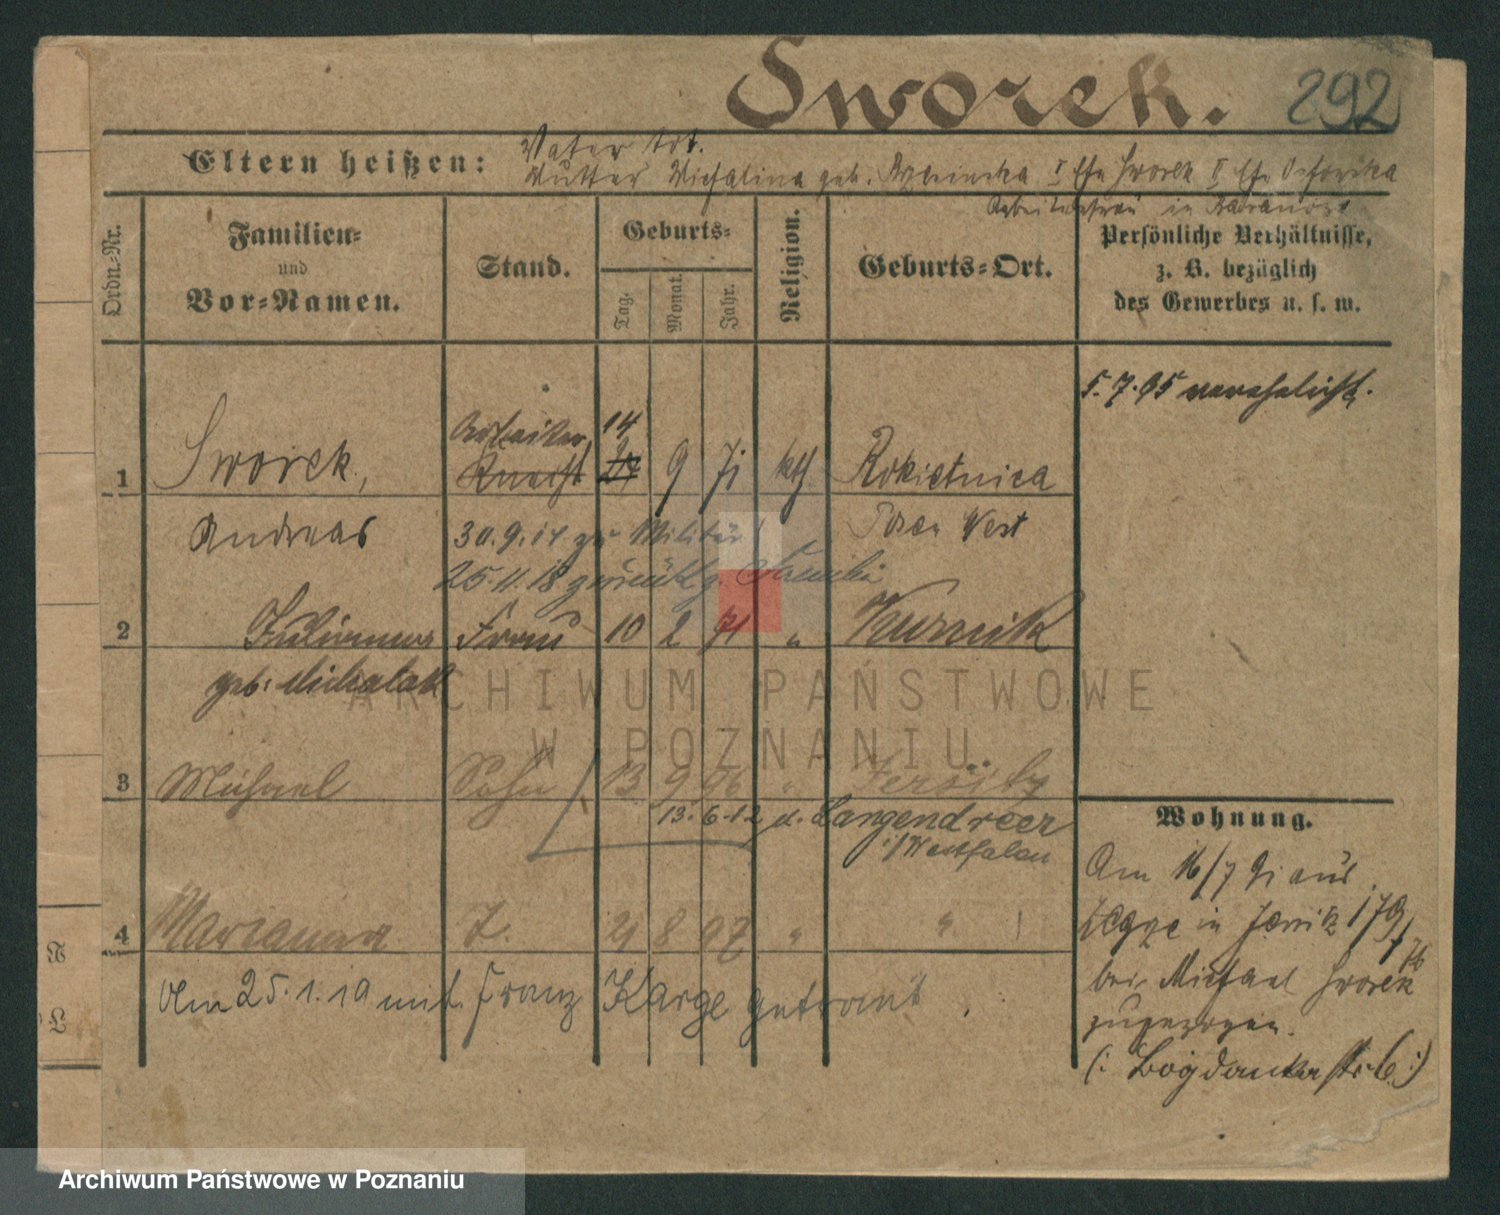 Sworek. 292
Vater tot.
Eltern heißen: Mutter Michalina geb. I Ehe Sworek II Ehe
Arbeiterfrau in
Ordn.-Nr.
Familien-
und
Vor-Namen.
Stand.
Geburts-
Tag.
Monat.
Jahr.
Religion.
Geburts-Ort.
Persönliche Verhältnisse,
z. B. bezüglich
des Gewerbes u. s. w.
5.7.95 verehelicht.
Arbeiter 14
1 Sworek, Knecht 27 9 71 kth Rokietnica
Andreas 30.9.14 zu Militär Posen West
25.11.18 zurück z. Familie
2 Frau 10 2 71 " Kurnik
geb. Michalak
ARCHIWUM PAŃSTWOWE
W POZNANIU
3 Michael Sohn 13 9 96 " Jersitz
13.6.12 n. Langendreer
i/Westfalen
4 Marianna T. 29 8 97 " "
Am 25.1.19 mit Franz Karge getraut.
Wohnung.
Am 16/7 91 aus
in Jersitz 179/76
bei Michael Sworek
zugezogen.
(: Bogdankastr. 6 :)
N
L
Archiwum Państwowe w Poznaniu